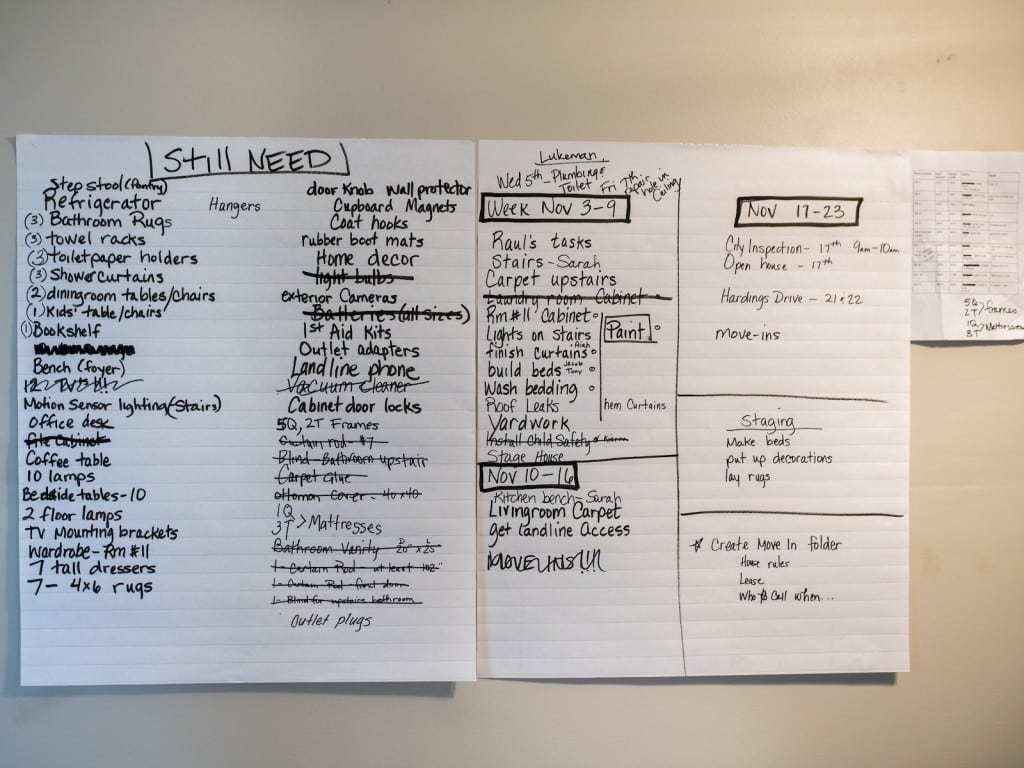 Still NEED
Step stool (Pantry)
Refrigerator
(3) Bathroom Rugs
(3) towel racks
(3) toiletpaper holders
(3) Shower curtains
(2) diningroom tables/chairs
(1) Kids' table/chairs
(1) Bookshelf
Bench (foyer)
12 TV's!!!
Motion Sensor lighting (Stairs)
Office desk
File Cabinet
Coffee table
10 lamps
Bedside tables-10
2 floor lamps
TV Mounting brackets
Wardrobe - Rm #11
7 tall dressers
7- 4x6 rugs
Hangers
door Knob wall protector
Cupboard Magnets
Coat hooks
rubber boot mats
Home decor
light bulbs
exterior Cameras
Batteries (all sizes)
1st Aid Kits
Outlet adapters
Landline phone
Vacuum Cleaner
Cabinet door locks
5Q, 2T Frames
Curtain rod - #7
Blind - Bathroom upstair
Carpet Glue
Ottoman Cover - 40x40
1Q
3T > Mattresses
Bathroom Vanity D20" x L25"
1- Curtain Rod - at least 102"
1- Curtain Rod - front door
1- Blind for upstairs bathroom
Outlet plugs
Lukeman
Wed 5th - Plumbing &
Toilet
Fri 7th:
repair
hole in
Ceiling
Week Nov 3-9
Raul's tasks
Stairs - Sarah
Carpet upstairs
Laundry room Cabinet
Rm #11 Cabinet
Lights on Stairs
finish Curtains
build beds Jacob
Tony
Wash bedding
Roof Leaks
Yardwork
Install Child Safety
Stage House
Paint
hem Curtains
Nov 10-16
Kitchen bench - Sarah
Livingroom Carpet
get landline Access
MOVE-INS!!!
Nov 17-23
City Inspection - 17th 9am-10am
Open house - 17th
Hardings Drive - 21 & 22
move-ins
Staging
Make beds
put up decorations
lay rugs
Create Move In folder
House rules
Lease
Who to Call when...
5Q
2T > Frames
1Q
3T > Mattresses